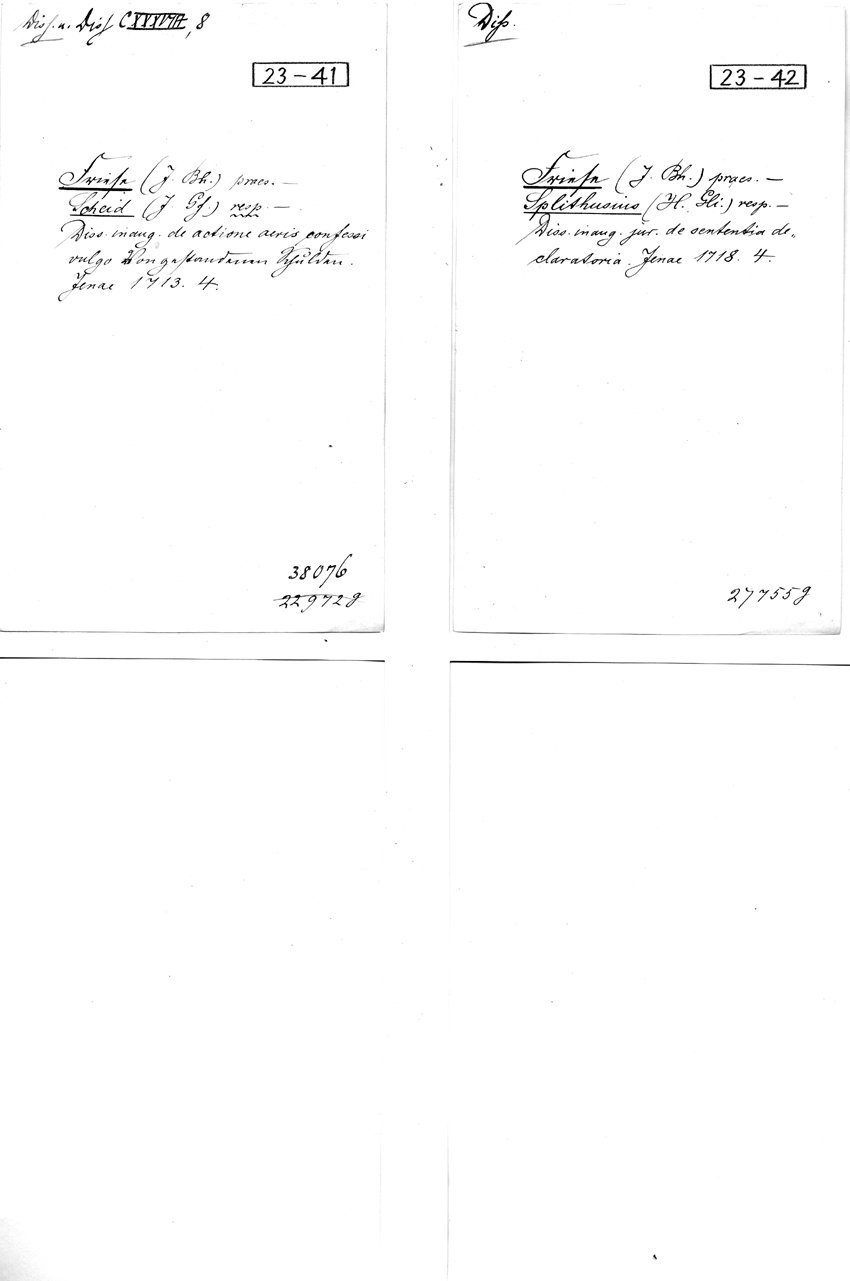 Diss. u. Diss CXXXVII, 8
23-41
Friese (J. Bh.) praes. —
Scheid (J Gf.) resp. —
Diss. inaug. de actione aeris confessi
vulgo Von gestandenen Schulden.
Jenae 1713. 4.
38076
22972g
Diss.
23-42
Friese (J. Bh.) praes. —
Splithusius (H. Gli.) resp. —
Diss. inaug. jur. de sententia de„
claratoria. Jenae 1718. 4.
27755g